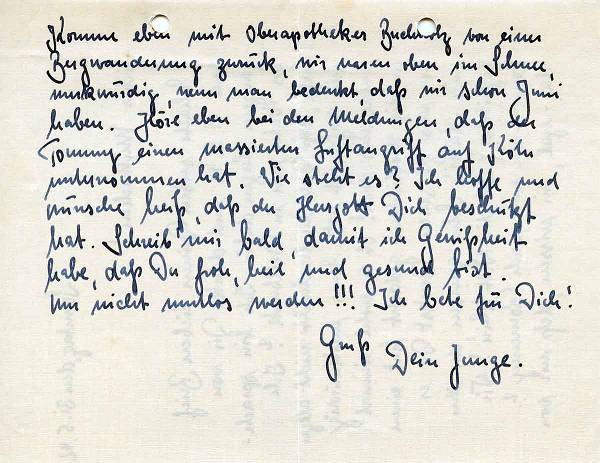 Komme eben mit Oberapotheker Buchholz von einer
Bergwanderung zurück, wir waren oben im Schnee,
merkwürdig, wenn man bedenkt, daß wir schon Juni
haben. Höre eben bei den Meldungen, daß der
Tommy einen massierten Luftangriff auf Köln
unternommen hat. Wie steht es? Ich hoffe und
wünsche heiß, daß der Herrgott Dich beschützt
hat. Schreib' mir bald, damit ich Gewißheit
habe, daß Du froh, heil und gesund bist.
Nur nicht mutlos werden!!! Ich bete für Dich!
Gruß Dein Junge.